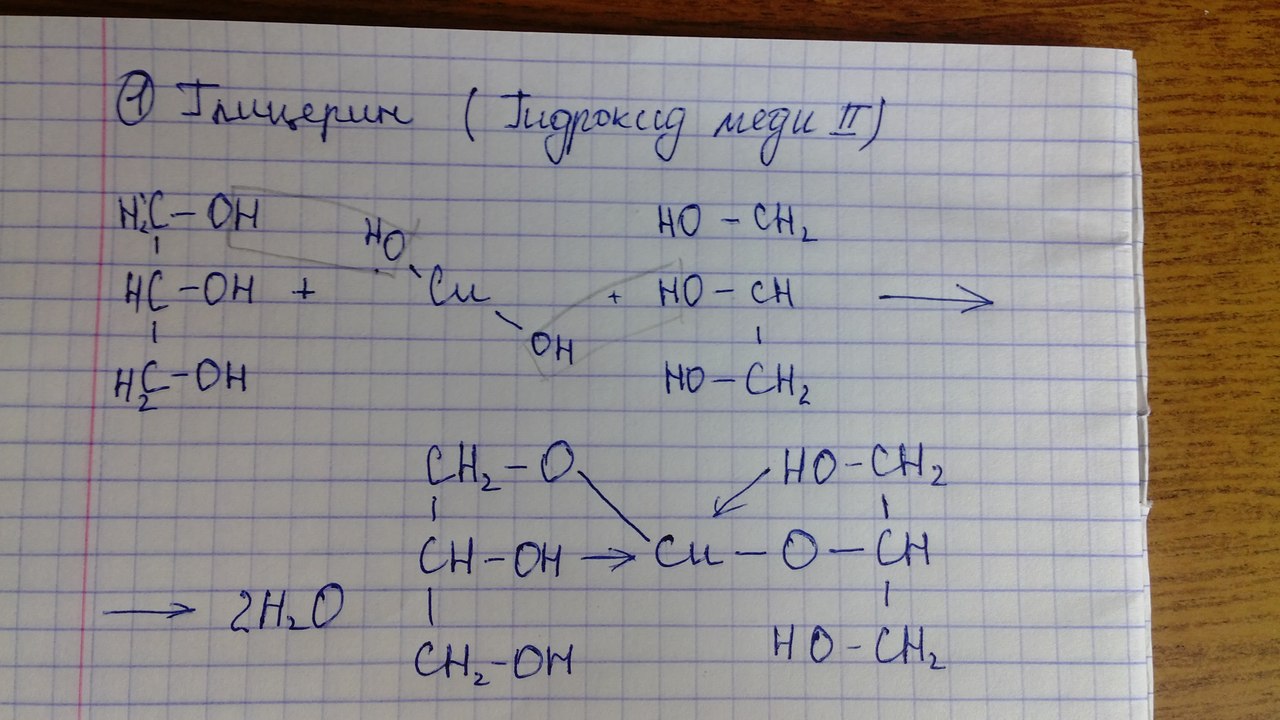 ① Глицерин (Гидроксид меди II)
H₂C – OH HO HO – CH₂
HC – OH + Cu + HO – CH →
H₂C – OH OH HO – CH₂
CH₂ – O HO – CH₂
CH – OH → Cu – O – CH
→ 2H₂O
CH₂ – OH HO – CH₂